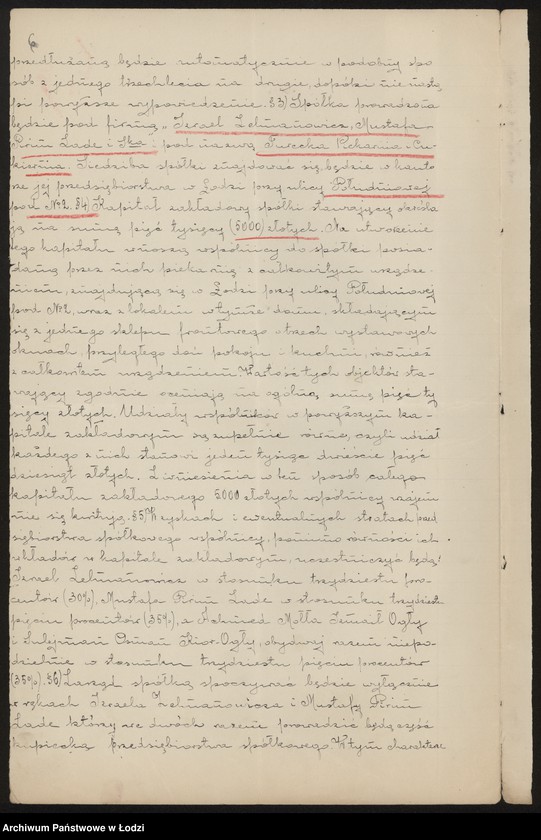 6
przedłużaną będzie automatycznie w podobny spo
sób z jednego trzechlecia na drugie, dopóki nie nastą
pi powyższe wypowiedzenie. §3) Spółka prowadzona
będzie pod firmą „Izrael Zelmanowicz, Mustafa
Prim Zade i S-ka" pod nazwą Turecka Piekarnia-Cu-
kiernia. Siedziba spółki znajdować się będzie w kanto
rze jej przedsiębiorstwa w Łodzi przy ulicy Południowej
pod №2. §4) Kapitał zakładowy spółki stawający określa
ją na sumę pięć tysięcy (5000) złotych. Na utworzenie
tego kapitału wnoszą wspólnicy do spółki posia-
daną przez nich piekarnię z całkowitym urządze-
niem, znajdującą się w Łodzi przy ulicy Południowej
pod №2, wraz z lokalem w tymże domu, składającym
się z jednego sklepu frontowego o trzech wystawowych
oknach, przyległego doń pokoju i kuchni, również
z całkowitem urządzeniem. Wartość tych objektów sta-
wający zgodnie oceniają na ogólną sumę pięć ty
sięcy złotych. Udziały wspólników w powyższym ka-
pitale zakładowym są zupełnie równe, czyli udział
każdego z nich stanowi jeden tysiąc dwieście pięć
dziesiąt złotych. Z wniesienia w ten sposób całego
kapitału zakładowego 5000 złotych wspólnicy wzajem
nie się kwitują. §5) W zyskach i ewentualnych stratach przed
siębiorstwa spółkowego wspólnicy, pomimo równości ich
wkładów w kapitale zakładowym, uczestniczyć będą:
Izrael Zelmanowicz w stosunku trzydziestu pro-
centów (30%), Mustafa Prim Zade w stosunku trzydziestu
pięciu procentów (35%), a Achmed Mołła Ismaił Ogły
i Sulejman Osman Kior-Ogły, obydwaj razem niepo-
dzielnie w stosunku trzydziestu pięciu procentów
(35%). §6) Zarząd spółką spoczywać będzie wyłącznie
w rękach Izraela Zelmanowicza i Mustafy Prim
Zade którzy we dwóch razem prowadzić będą część
kupiecką przedsiębiorstwa spółkowego. W tym charakterze
Archiwum Państwowe w Łodzi